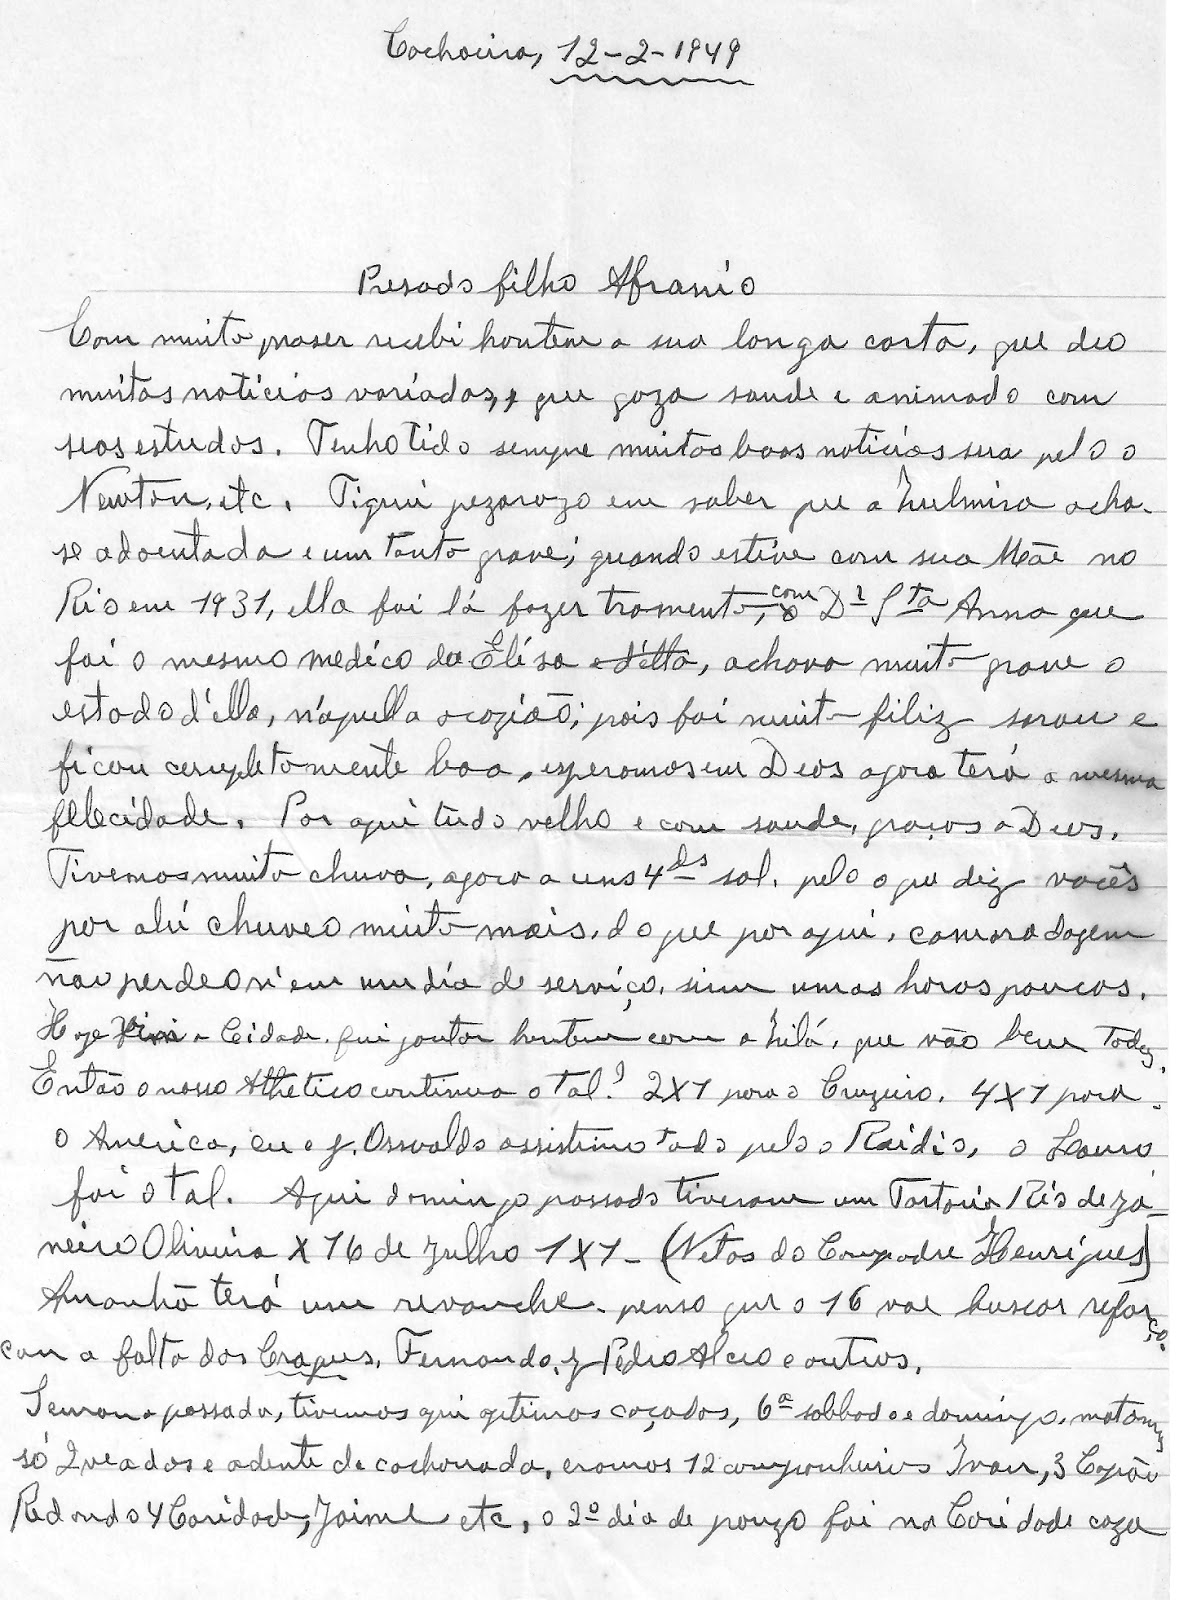 Cachoeira, 12-2-1949
Presado filho Afranio
Com muito praser recebi hontem a sua longa carta, que deo
muitas noticias variadas, e que goza saude e animado com
seos estudos. Tenho tido sempre muitas boas noticias sua pelo o
Newton, etc. Fiquei pezarozo em saber que a Zulmira acha-
se adoentada e um tanto grave; quando estive com sua Mãe no
Rio em 1931, ella foi lá fazer tramento, com o Dr Sta Anna que
foi o mesmo medico da Elisa e d'ella, achava muito grave o
estado d'ella, n'aquella ocazião; pois foi muito filiz sarou e
ficou completamente boa, esperamos em Deos agora terá a mesma
felecidade. Por aqui tudo velho e com saude, graças a Deus.
Tivemos muito chuva, agora a uns 4 ds sol, pelo o que diz vocês
por ahi choveo muito mais, do que por aqui, camaradagem
não perdeo n'em um dia de serviço, sim umas horas poucas.
Hoje vim a Cidade, fui jantar hontem com a Zilá, que vão bem todos.
Então o nosso Athletico continua o tal? 2X1 para o Cruzeiro. 4X1 para
o America, eu e J. Osvaldo assistimo tudo pelo o Raidio, o Lauro
foi o tal. Aqui domingo passado tiveram um Rio de Ja-
neiro Oliveira X 16 de Julho 1X1 - (Netos do Compadre Henriques)
Amanhã terá um revanche. penso que o 16 vae buscar refor-
ço. com a falta dos Craques, Fernando, J Pedro Alcio e outros.
Semana passada, tivemos aqui otimas caçadas, 6ª sabbado e domingo, matamos
só 2 veados e adente de cachorrada, eramos 12 companheiros Ivan, 3 Capão
Redondo 4 Caridade, Jaime etc, o 2º dia de pouzo foi na Caridade caza